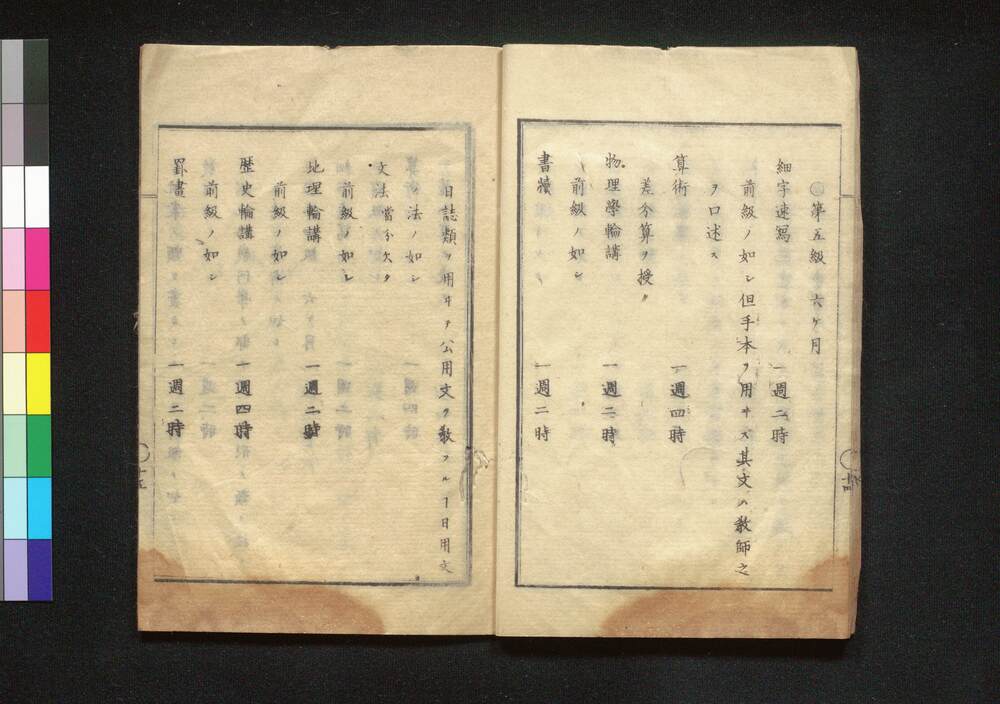 ○第五級 六ケ月
細字速寫 一週二時
前級ノ如シ但手本ヲ用ヰズ其文ハ敎師之
ヲ口述ス
算術 一週四時
差分算ヲ授ク
物理學輪講 一週二時
前級ノ如シ
書牘 一週二時
日誌類ヲ用ヰテ公用文ヲ敎フルヿ日用文
ノ法ノ如シ
文法當分欠ク
前級ノ如シ
地理輪講 一週二時
前級ノ如シ
歴史輪講 一週四時
前級ノ如シ
罫畫 一週二時